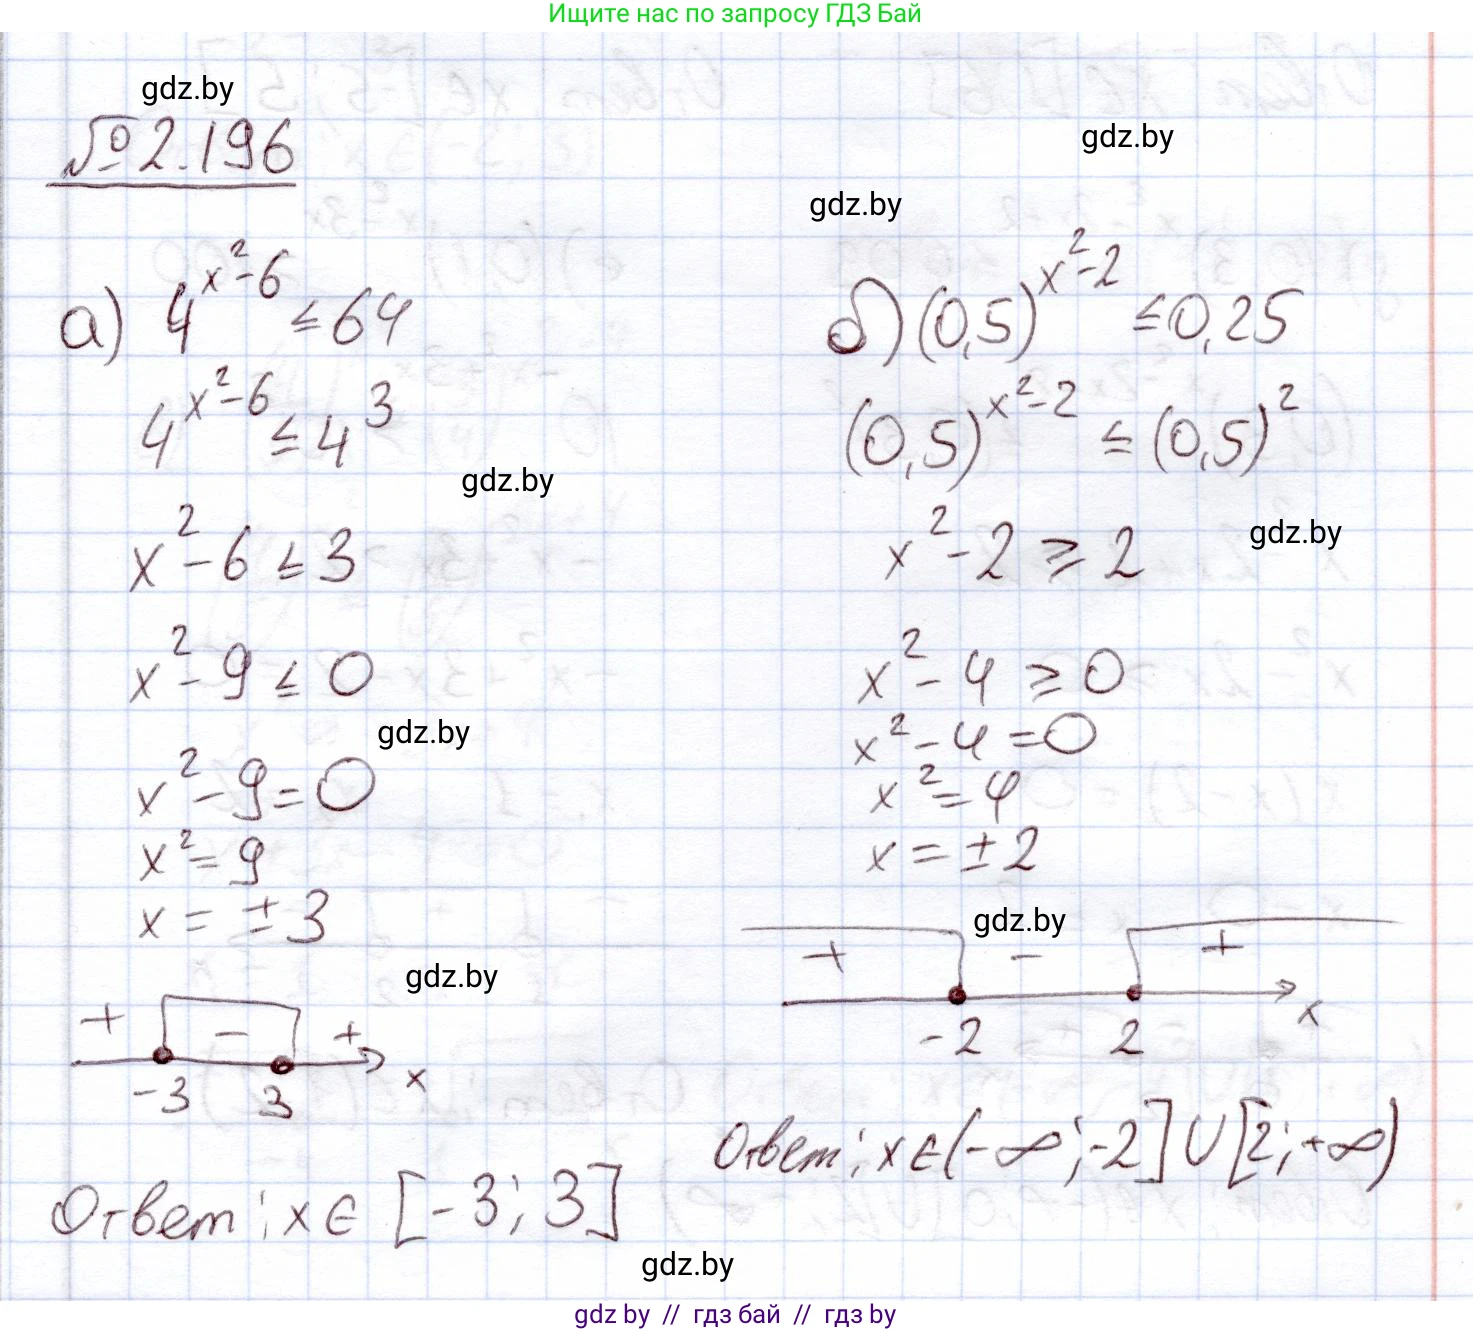 Ищите нас по запросу ГДЗ Бай
gdz.by
№ 2.196
gdz.by
gdz.by
а) 4^{x²-6} ≤ 64
4^{x²-6} ≤ 4³
gdz.by
x² - 6 ≤ 3
x² - 9 ≤ 0
gdz.by
x² - 9 = 0
x² = 9
x = ± 3
gdz.by
+ - +
-3 3 x
Ответ: x ∈ [-3; 3]
б) (0,5)^{x²-2} ≤ 0,25
(0,5)^{x²-2} ≤ (0,5)²
gdz.by
x² - 2 ≥ 2
x² - 4 ≥ 0
x² - 4 = 0
x² = 4
x = ± 2
gdz.by
+ - +
-2 2 x
Ответ: x ∈ (-∞; -2] ∪ [2; +∞)
gdz.by
gdz by // гдз бай // гдз by